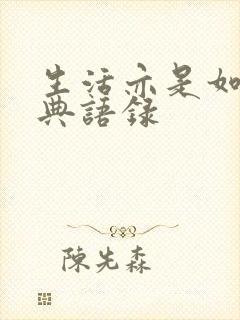 生活亦是如
典語錄
陳先森